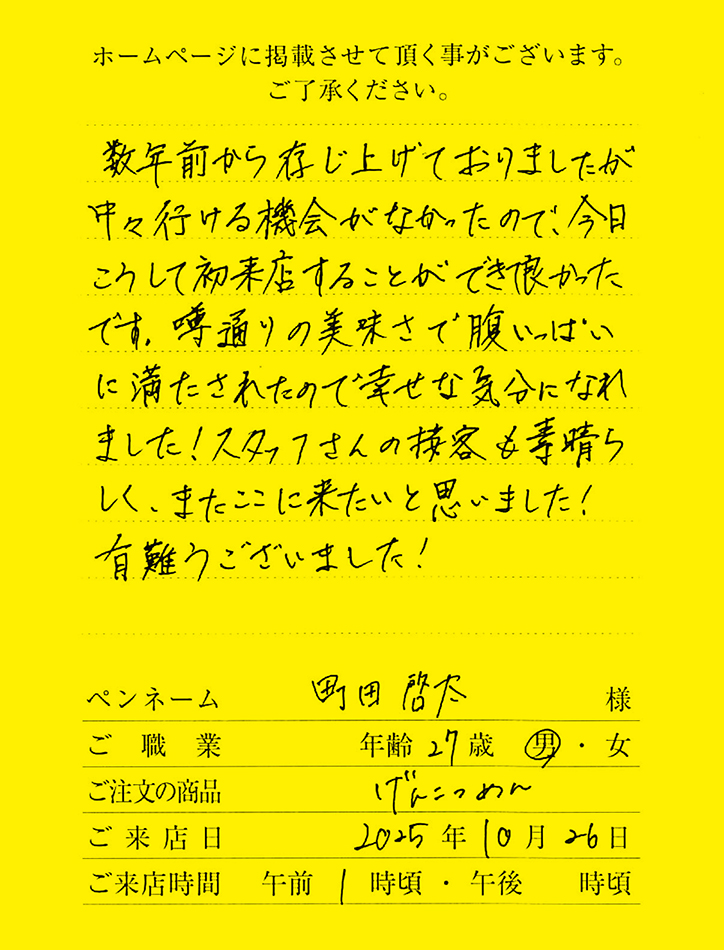 ホームページに掲載させて頂く事がございます。
ご了承ください。
数年前から存じ上げておりましたが
中々行ける機会がなかったので、今日
こうして初来店することができ良かった
です。噂通りの美味さで腹いっぱい
に満たされたので幸せな気分になれ
ました!スタッフさんの接客も素晴ら
しく、またここに来たいと思いました!
有難うございました!
ペンネーム 町田 啓太 様
ご職業 年齢 27 歳 男・女
ご注文の商品 げんこつめん
ご来店日 2025 年 10 月 26 日
ご来店時間 午前 1 時頃・午後 時頃